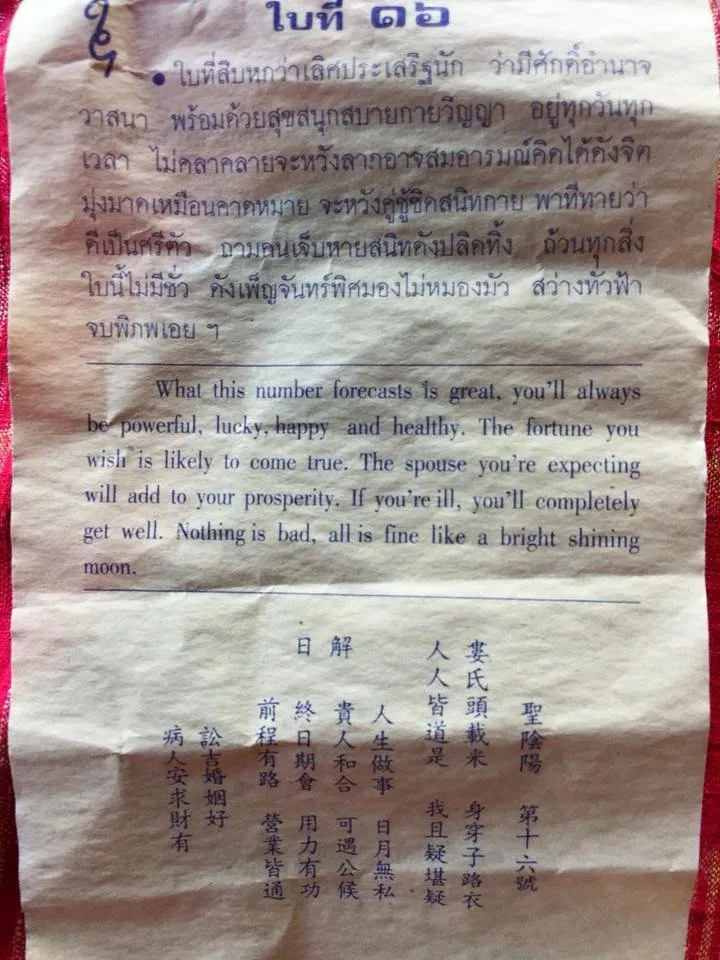 ใบที่ ๑๖
• ใบที่สิบหกว่าเลิศประเสริฐนัก ว่ามีศักดิ์อำนาจ
วาสนา พร้อมด้วยสุขสนุกสบายกายวิญญา อยู่ทุกวันทุก
เวลา ไม่คลาดคลายจะหวังลาภอาจสมอารมณ์คิดได้ดังจิต
มุ่งมาดเหมือนคาดหมาย จะหวังคู่ชู้ชิดสนิทกาย พาทีทายว่า
ดีเป็นศรีตัว ถามคนเจ็บหายสนิทดังปลิดทิ้ง ถ้วนทุกสิ่ง
ใบนี้ไม่มีชั่ว ดังเพ็ญจันทร์พิศมองไม่หมองมัว สว่างทั่วฟ้า
จบพิภพเอย ฯ
What this number forecasts is great, you'll always
be powerful, lucky, happy and healthy. The fortune you
wish is likely to come true. The spouse you're expecting
will add to your prosperity. If you're ill, you'll completely
get well. Nothing is bad, all is fine like a bright shining
moon.
聖陰陽 第十六號
婁氏頭載米 身穿子路衣
人人皆道是 我且疑堪疑
人生做事 日月無私
解 貴人和合 可遇公候
日 終日期會 用力有功
前程有路 營業皆通
訟吉婚姻好
病人安求財有